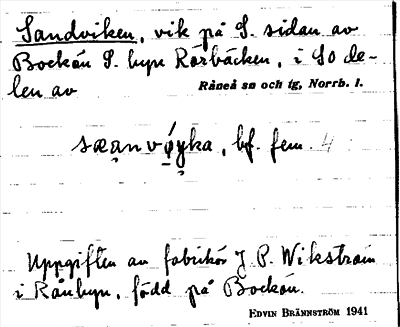 Sandviken, vik på S. sidan av
Bockön S. byn Rörbäcken, i SO de-
len av Råneå sn och tg, Norrb. l.
bf. fem. 4
Uppgiften av fabrikör J. P. Wikström
i Rånbyn, född på Bockön.
EDVIN BRÄNNSTRÖM 1941